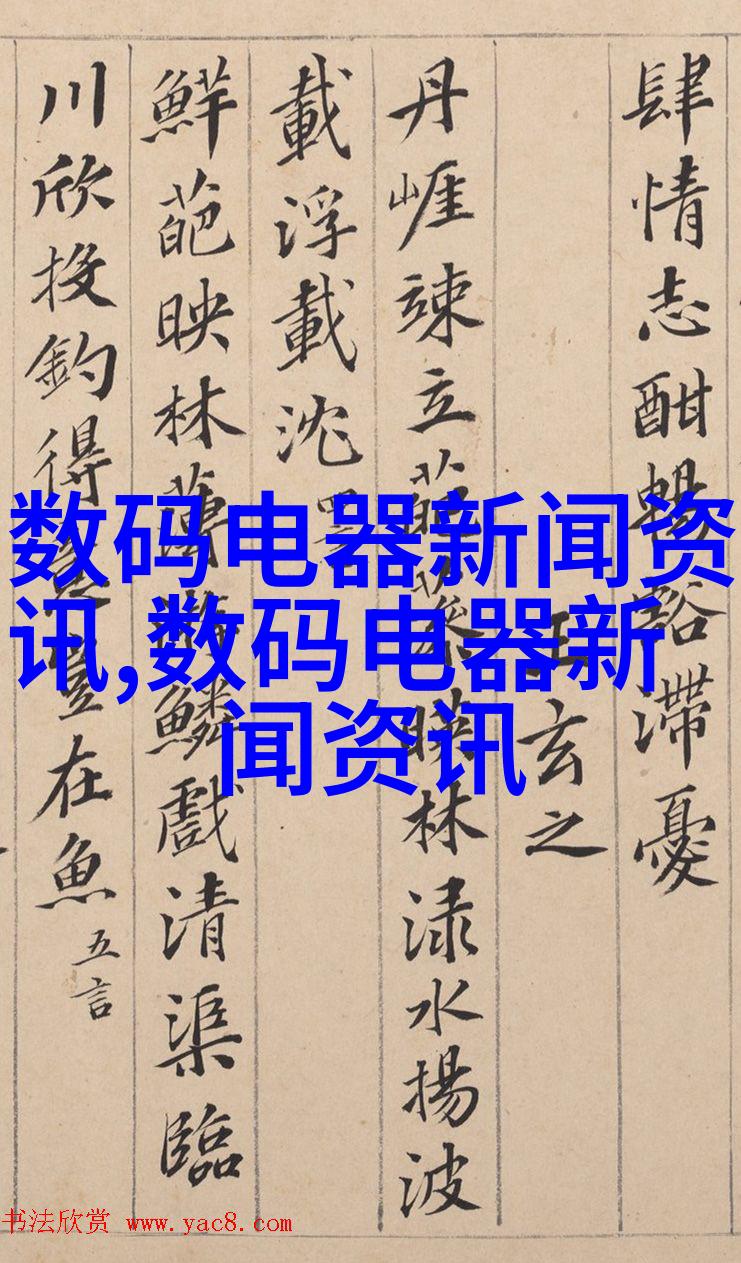 肆情志酣暢豁滯憂
王玄之
丹崕竦立葩藻暎林渌水揚波
載浮載沈
鮮葩映林薄游鱗戲清渠臨
川欣投釣得意豈在魚 五言
数码电器新闻资
讯,数码电器新
闻资讯
书法欣赏 www.yac8.com